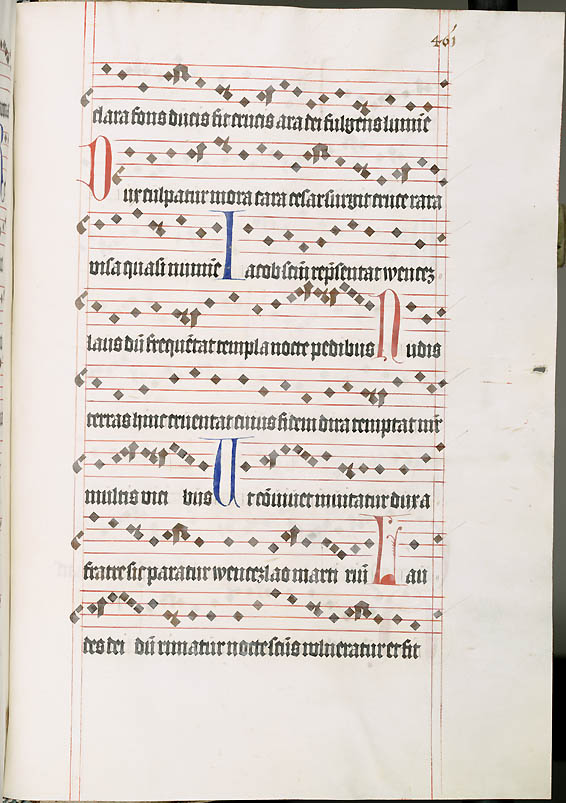 461
clara fons ducis fit crucis ara dei fulgens lumīe
Dux culpatur mora cara cesar surgit cruce rara
visa quasi numīe Iacob scīm rep̄sentat wencez
laus dū̄ freqūetat templa nocte pedibus Nudis
terras hinc cruentat cuius fidem dira temptat nir
multis vici bus Ut cōvivet invitatur dux a
fratre sic paratur wenczlao marti riū Lau
des dei dū rimatur nocte scūs vulneratur et fit